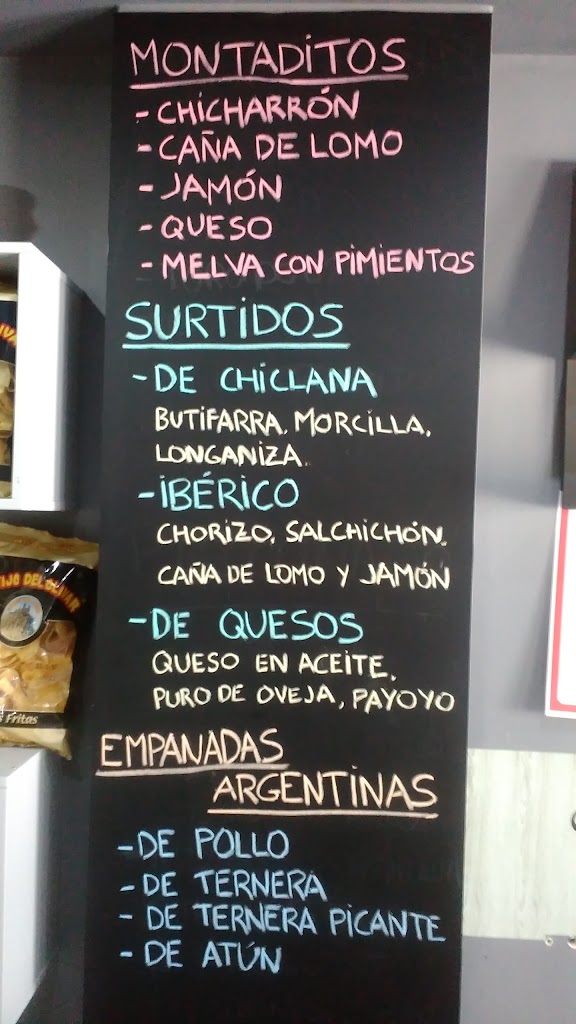 MONTADITOS
- CHICHARRÓN
- CAÑA DE LOMO
- JAMÓN
- QUESO
- MELVA CON PIMIENTOS
SURTIDOS
- DE CHICLANA
BUTIFARRA, MORCILLA,
LONGANIZA.
- IBÉRICO
CHORIZO, SALCHICHÓN,
CAÑA DE LOMO Y JAMÓN
- DE QUESOS
QUESO EN ACEITE,
PURO DE OVEJA, PAYOYO
EMPANADAS
ARGENTINAS
- DE POLLO
- DE TERNERA
- DE TERNERA PICANTE
- DE ATÚN
IJO DEL OLIVAR
Fritas